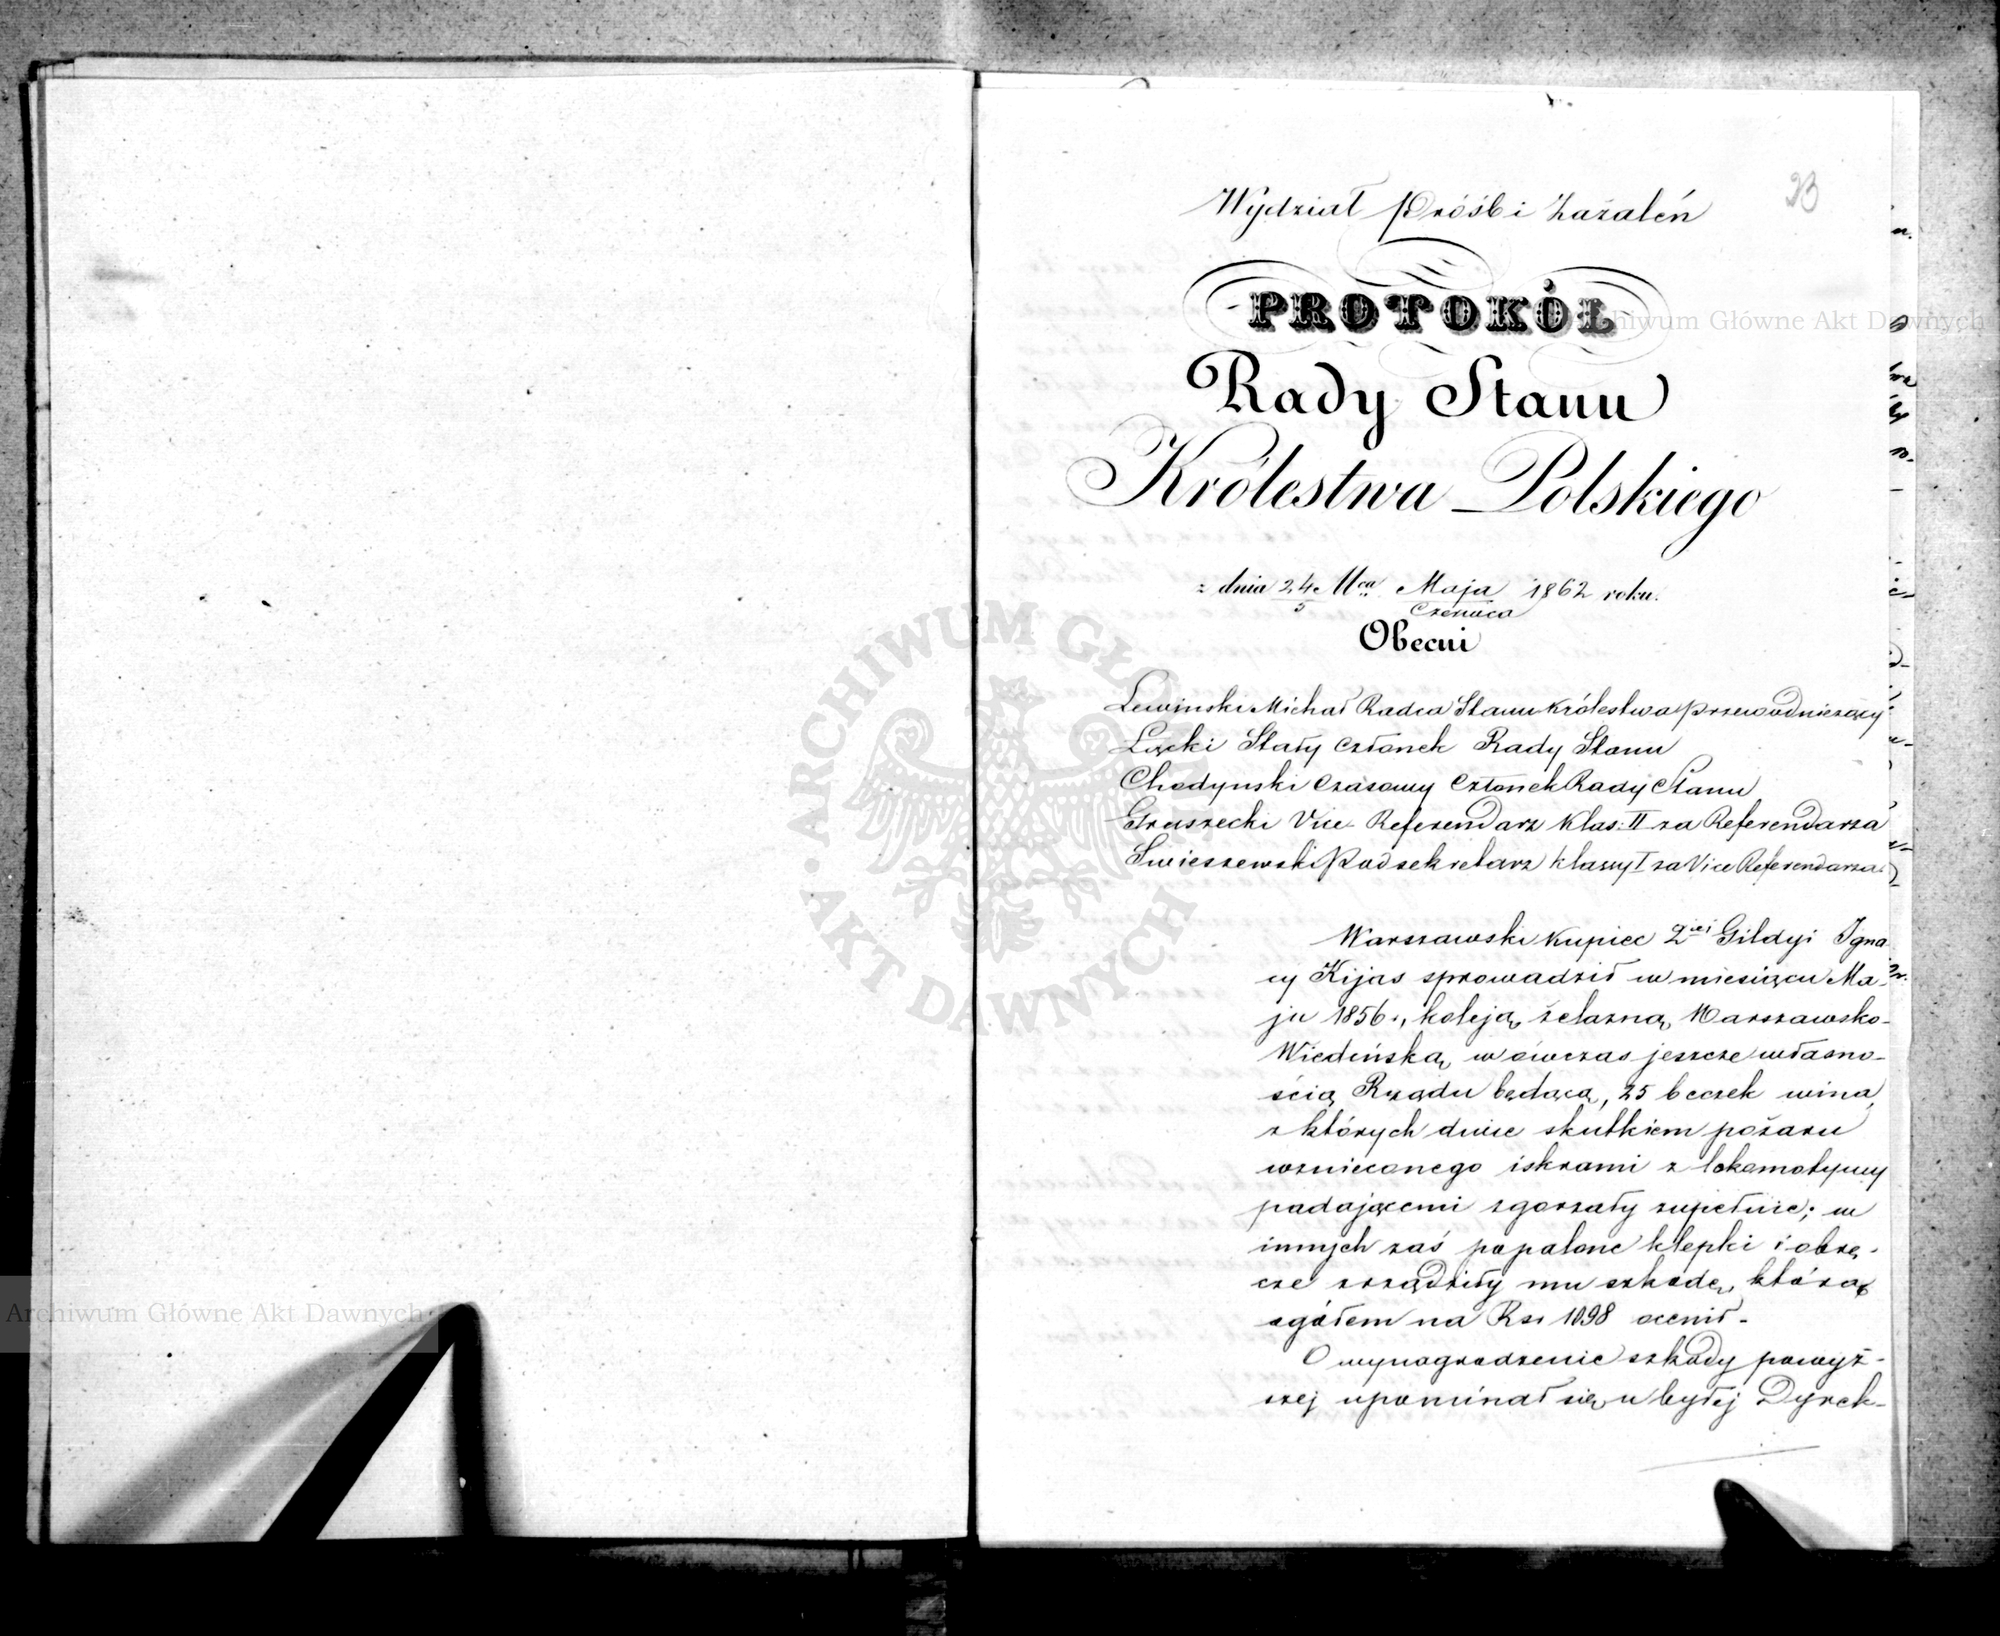 23
Wydział Próśb i Zażaleń
PROTOKÓŁ
Rady Stanu
Królestwa Polskiego
z dnia 24/5 Mca Maja/Czerwca 1862 roku.
Obecni
Lewinski Michał Radca Stanu Królestwa przewodniczący
Łącki Stały Członek Rady Stanu
Chodynski Czasowy Członek Rady Stanu
Gruszecki Vice-Referendarz Klas: II za Referendarza
Swieszewski Podsekretarz klassy I za Vice Referendarza.
Warszawski Kupiec 2iej Gildyi Igna
cy Kijas sprowadził w miesiącu Ma-
ju 1856 r., koleją żelazną Warszawsko-
Wiedeńską wówczas jeszcze własno-
ścią Rządu będącą, 25 beczek wina,
z których dwie skutkiem pożaru
wznieconego iskrami z lokomotywy
padającemi zgorzały zupełnie; w
innych zaś popalone klepki i obrę-
cze zrządziły mu szkodę, którą
ogółem na Rsr 1098 ocenił.-
O wynagrodzenie szkody powyż-
szej upominał się u byłej Dyrek-
Archiwum Główne Akt Dawnych
Archiwum Główne Akt Dawnych
ARCHIWUM GŁÓWNE · AKT DAWNYCH ·